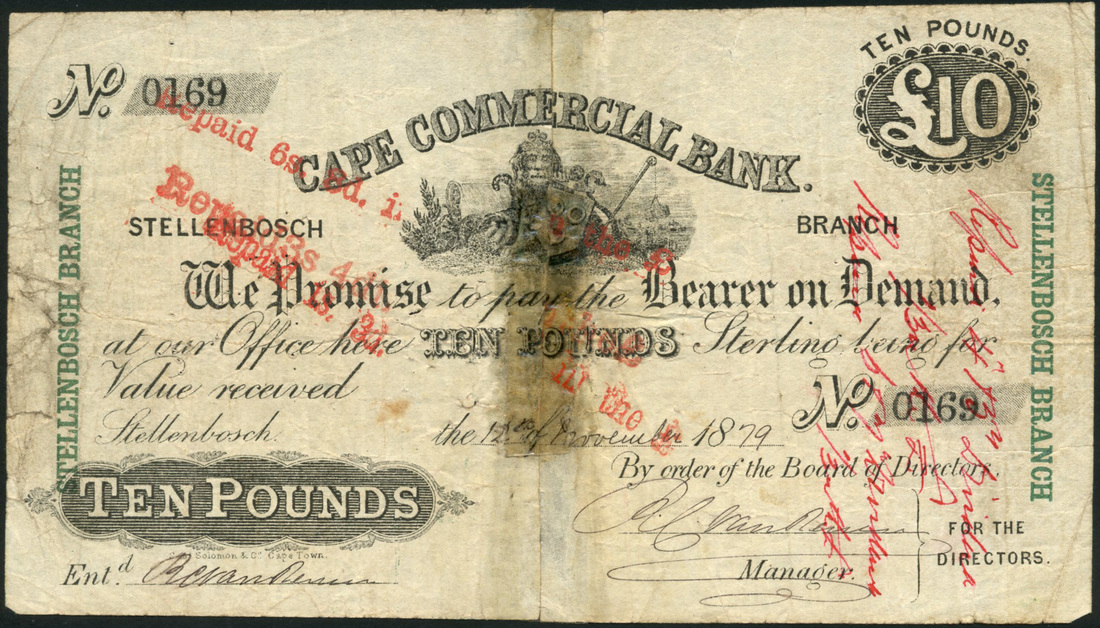 TEN POUNDS.
£10
No. 0169
CAPE COMMERCIAL BANK.
STELLENBOSCH BRANCH
We Promise to pay the Bearer on Demand,
at our Office here TEN POUNDS Sterling being for
Value received
No. 0169
Stellenbosch. the 12th of November 1879
By order of the Board of Directors.
TEN POUNDS
Solomon & Co. Cape Town.
Entd
Manager.
FOR THE
DIRECTORS.
STELLENBOSCH BRANCH
STELLENBOSCH BRANCH
Repaid 6s. d. in
the £
3s 4d.
Repaid 1s. 3d.
in the £